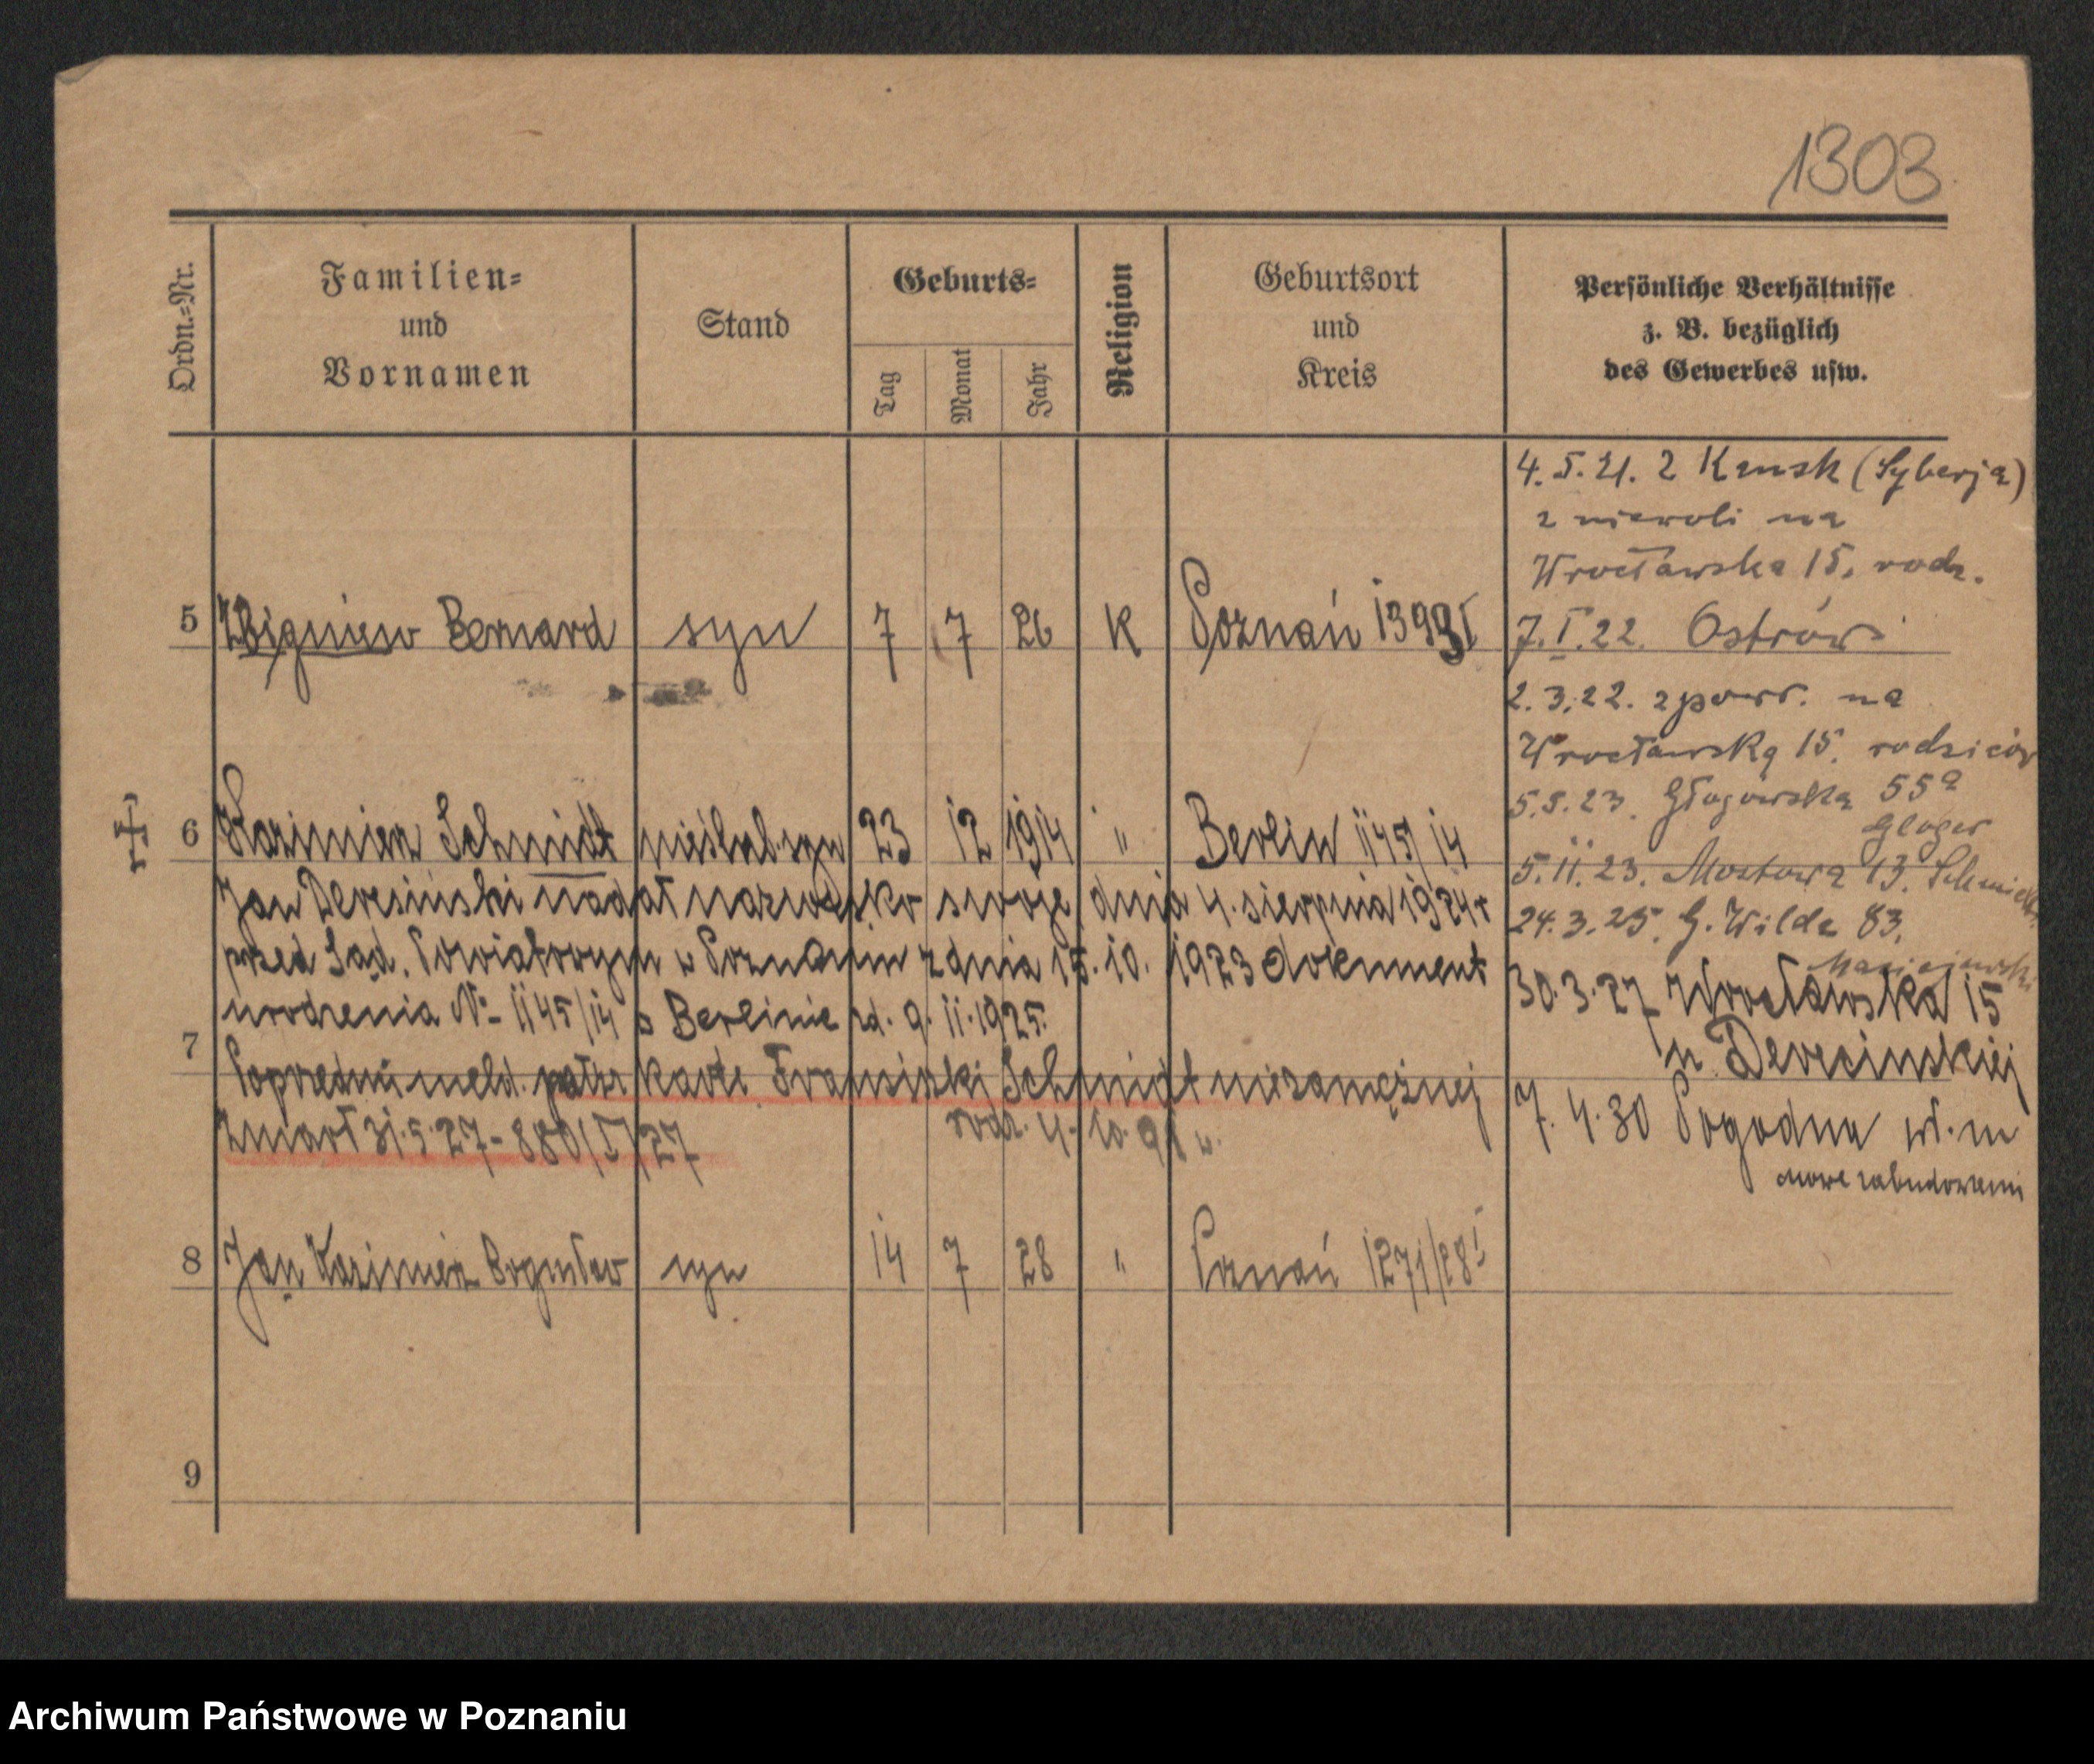 1303
Ordn.-Nr.
Familien-
und
Vornamen
Stand
Geburts-
Tag
Monat
Jahr
Religion
Geburtsort
und
Kreis
Persönliche Verhältnisse
z. B. bezüglich
des Gewerbes usw.
4. 5. 21. z Kansk (Syberja)
z niewoli na
Wrocławska 15, rodz.
5 Zbigniew Bernard syn 7 7 26 K Poznań
7. I. 22. Ostrów
2. 3. 22. z powr. na
Wrocławską 15. rodziców
5. 5. 23. Głogowska 55a
Gloger
6 Kazimierz Schmidt nieślub. syn 23 12 1914 " Berlin 1145/14
5. 11. 23. Mostowa 13. Schmidt
Jan Deresiński nadał nazwisko swoje dnia 4. sierpnia 1924 r
24. 3. 25. G. Wilda 83.
Maciejewski
przed Sąd. Powiatowym w Poznaniu z dnia 15. 10. 1923 dokument
30. 3. 27 Wrocławska 15
urodzenia No 1145/14 Berlinie zd. 9. 11. 1925.
u Deresińskiej
7 Poprzedni meld. patrz karte Fransiski Schmidt niezamężnej
7. 4. 30 Pogodna wł. m
rodz. 4. 10. 91
zmarł 31. 5. 27 - 880/I/27
nowe zabudowani
8 Jan Kazimierz Bogusław syn 14 7 28 " Poznań 1271/28 I
9
Archiwum Państwowe w Poznaniu